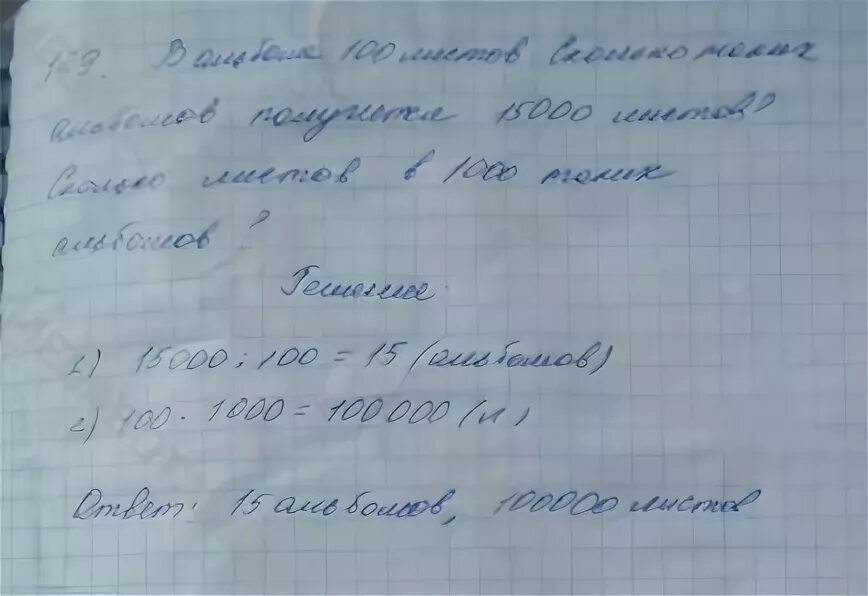 159. В альбоме 100 листов Сколько таких
альбомов получится 15000 листов?
Сколько листов в 1000 таких
альбомов?
Решение.
1) 15000 : 100 = 15 (альбомов)
2) 100 · 1000 = 100000 (л)
Ответ: 15 альбомов, 100000 листов